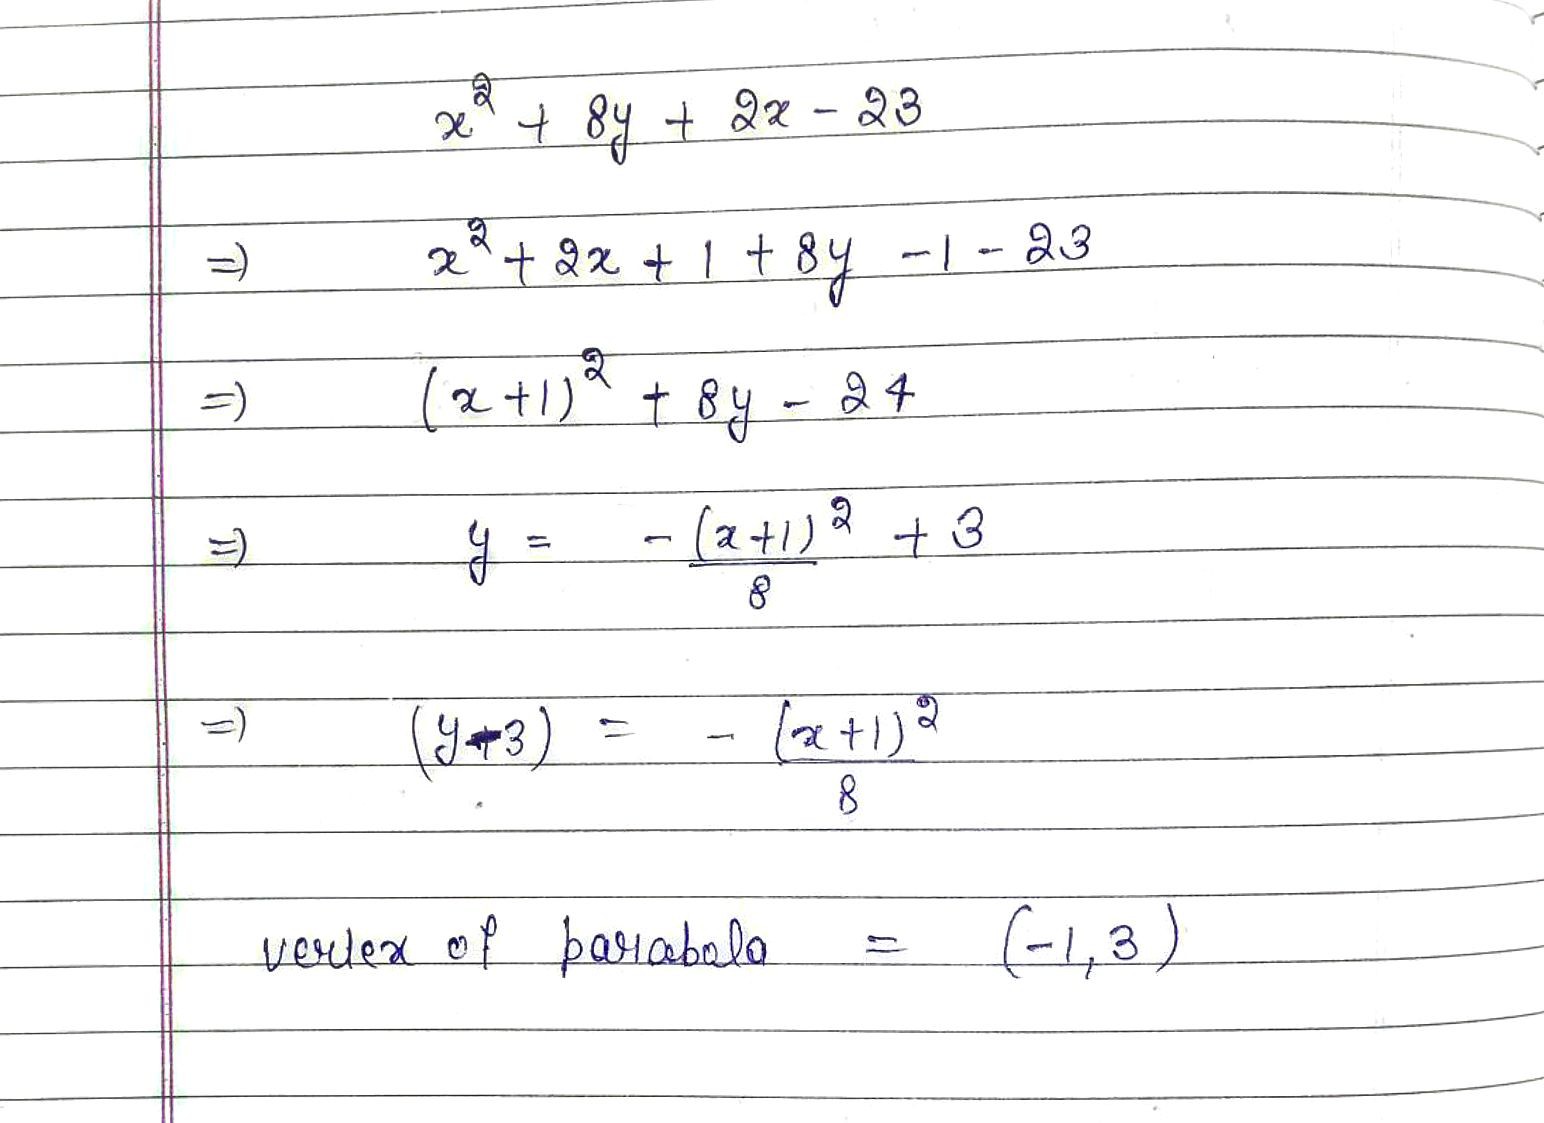 x² + 8y + 2x - 23
=) x² + 2x + 1 + 8y - 1 - 23
=) (x+1)² + 8y - 24
=) y = -(x+1)²/8 + 3
=) (y-3) = -(x+1)²/8
vertex of parabola = (-1, 3)